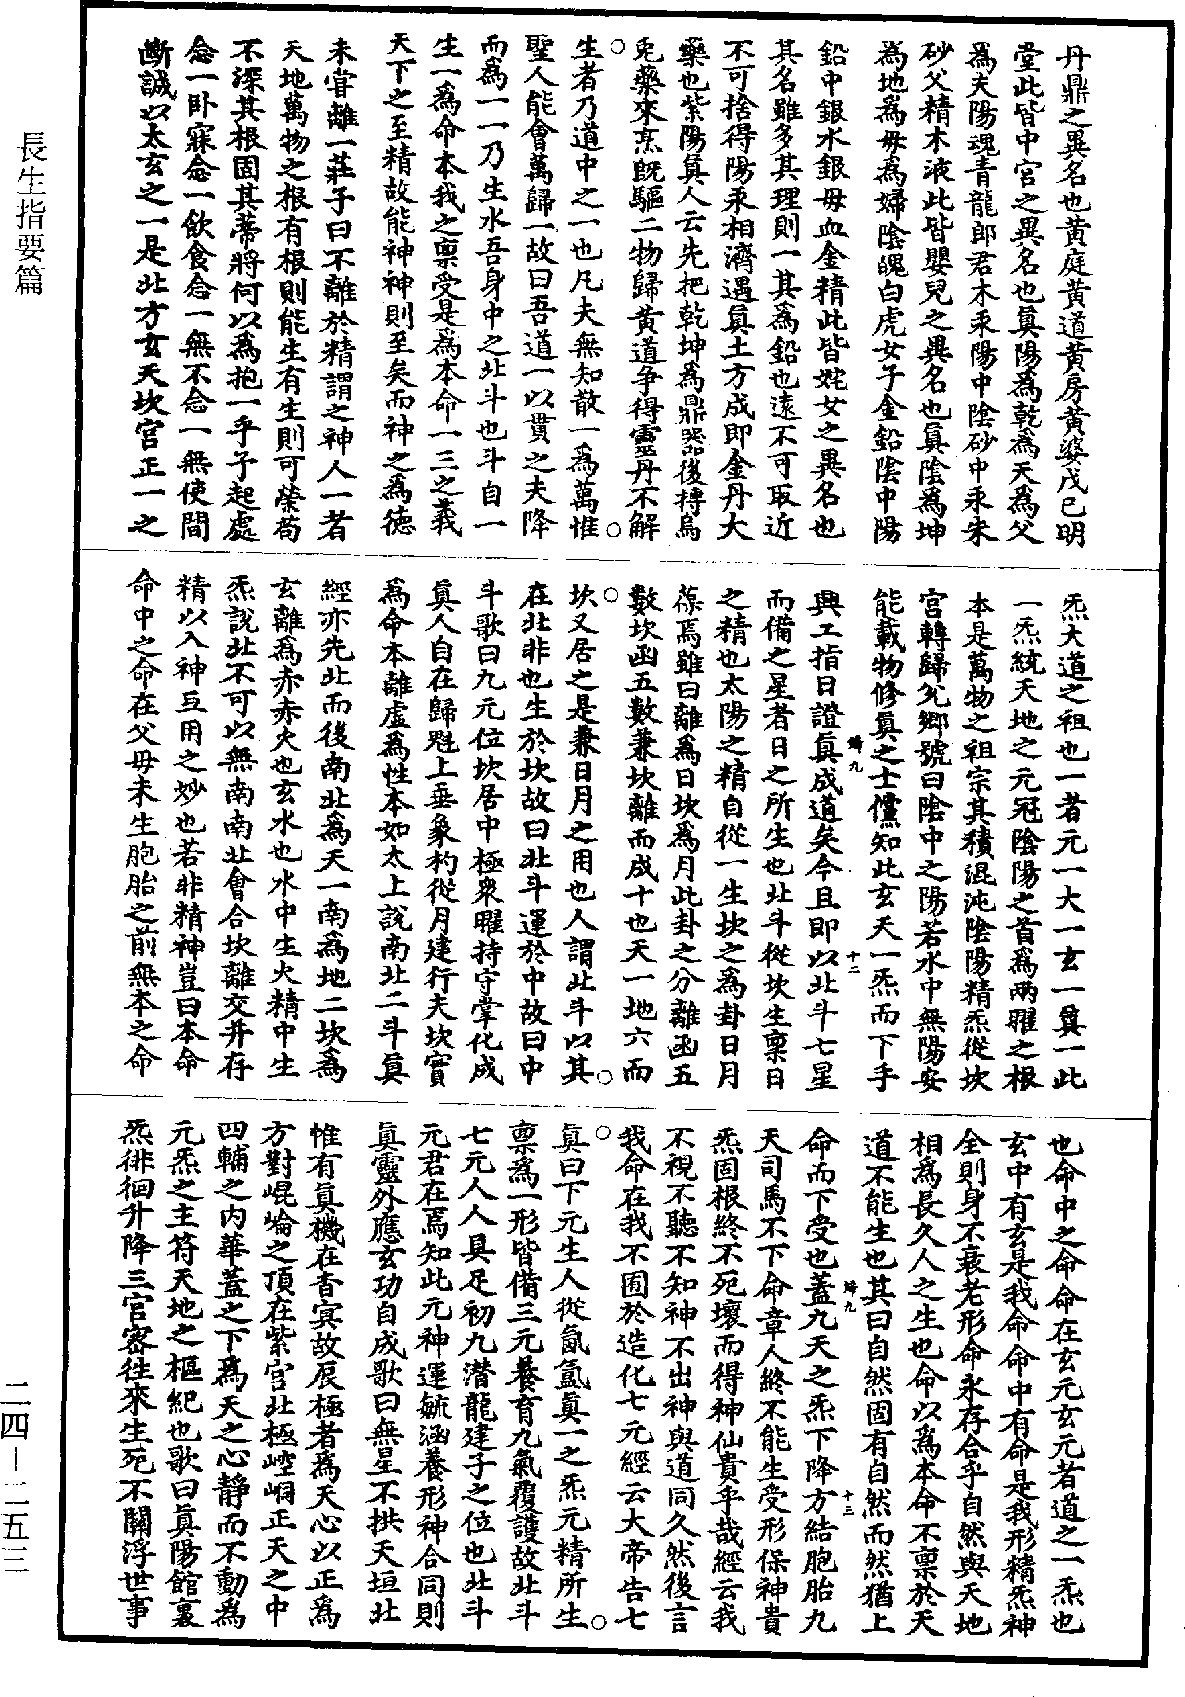 丹鼎之異名也黃庭黃道黃房黃婆戊己明
堂此皆中宮之異名也真陽為乾為天為父
為夫陽魂青龍郎君木汞陽中陰砂中汞朱
砂父精木液此皆嬰兒之異名也真陰為坤
為地為母為婦陰魄白虎女子金鉛陰中陽
鉛中銀水銀母血金精此皆姹女之異名也
其名雖多其理則一其為鉛也遠不可取近
不可捨得陽汞相濟遇真土方成即金丹大
藥也紫陽真人云先把乾坤為鼎器後摶烏
兔藥來烹既驅二物歸黃道爭得靈丹不解
生者乃道中之一也凡夫無知散一為萬惟
聖人能會萬歸一故曰吾道一以貫之夫降
而為一一乃生水吾身中之北斗也斗自一
生一為命本我之稟受是為本命一三之義
天下之至精故能神神則至矣而神之為德
未嘗離一莊子曰不離於精謂之神人一者
天地萬物之根有根則能生有生則可榮苟
不深其根固其蒂將何以為抱一乎子起處
念一臥寐念一飲食念一無不念一無使間
斷誠以太玄之一是北方玄天坎宮正一之
炁大道之祖也一者元一大一玄一真一此
一炁統天地之元冠陰陽之首為兩曜之根
本是萬物之祖宗其積混沌陰陽精炁從坎
宮轉歸兌鄉號曰陰中之陽若水中無陽安
能載物修真之士儻知此玄天一炁而下手
興工指日證真成道矣今且即以北斗七星
而備之星者日之所生也北斗從坎生稟日
之精也太陽之精自從一生坎之為卦日月
葆焉雖曰離為日坎為月此卦之分離函五
數坎函五數兼坎離而成十也天一地六而
坎又居之是兼日月之用也人謂北斗以其
在北非也生於坎故曰北斗運於中故曰中
斗歌曰九元位坎居中極衆曜持守掌化成
真人自在歸魁上垂象杓從月建行夫坎實
為命本離虛為性本如太上說南北二斗真
經亦先北而後南北為天一南為地二坎為
玄離為赤赤火也玄水也水中生火精中生
炁說北不可以無南南北會合坎離交并存
精以入神互用之妙也若非精神豈曰本命
命中之命在父母未生胞胎之前無本之命
也命中之命命在玄元玄元者道之一炁也
玄中有玄是我命命中有命是我形精炁神
全則身不衰老形命永存合乎自然與天地
相為長久人之生也命以為本命不稟於天
道不能生也其曰自然固有自然而然猶上
命而下受也蓋九天之炁下降方結胞胎九
天司馬不下命章人終不能生受形保神貴
炁固根終不死壞而得神仙貴乎哉經云我
不視不聽不知神不出神與道同久然後言
我命在我不囿於造化七元經云大帝告七
真曰下元生人從氤氳真一之炁元精所生
稟為一形皆備三元養育九氣覆護故北斗
七元人人具足初九潛龍建子之位也北斗
元君在焉知此元神運毓涵養形神合同則
真靈外應玄功自成歌曰無星不拱天垣北
惟有真機在杳冥故辰極者為天心以正為
方對崐崘之頂在紫宮北極崆峒正天之中
四輔之內華蓋之下為天之心靜而不動為
元炁之主符天地之樞紀也歌曰真陽館裏
炁徘徊升降三宮密往來生死不關浮世事
長生指要篇
二四—二五三
婦九
十二
婦九
十三